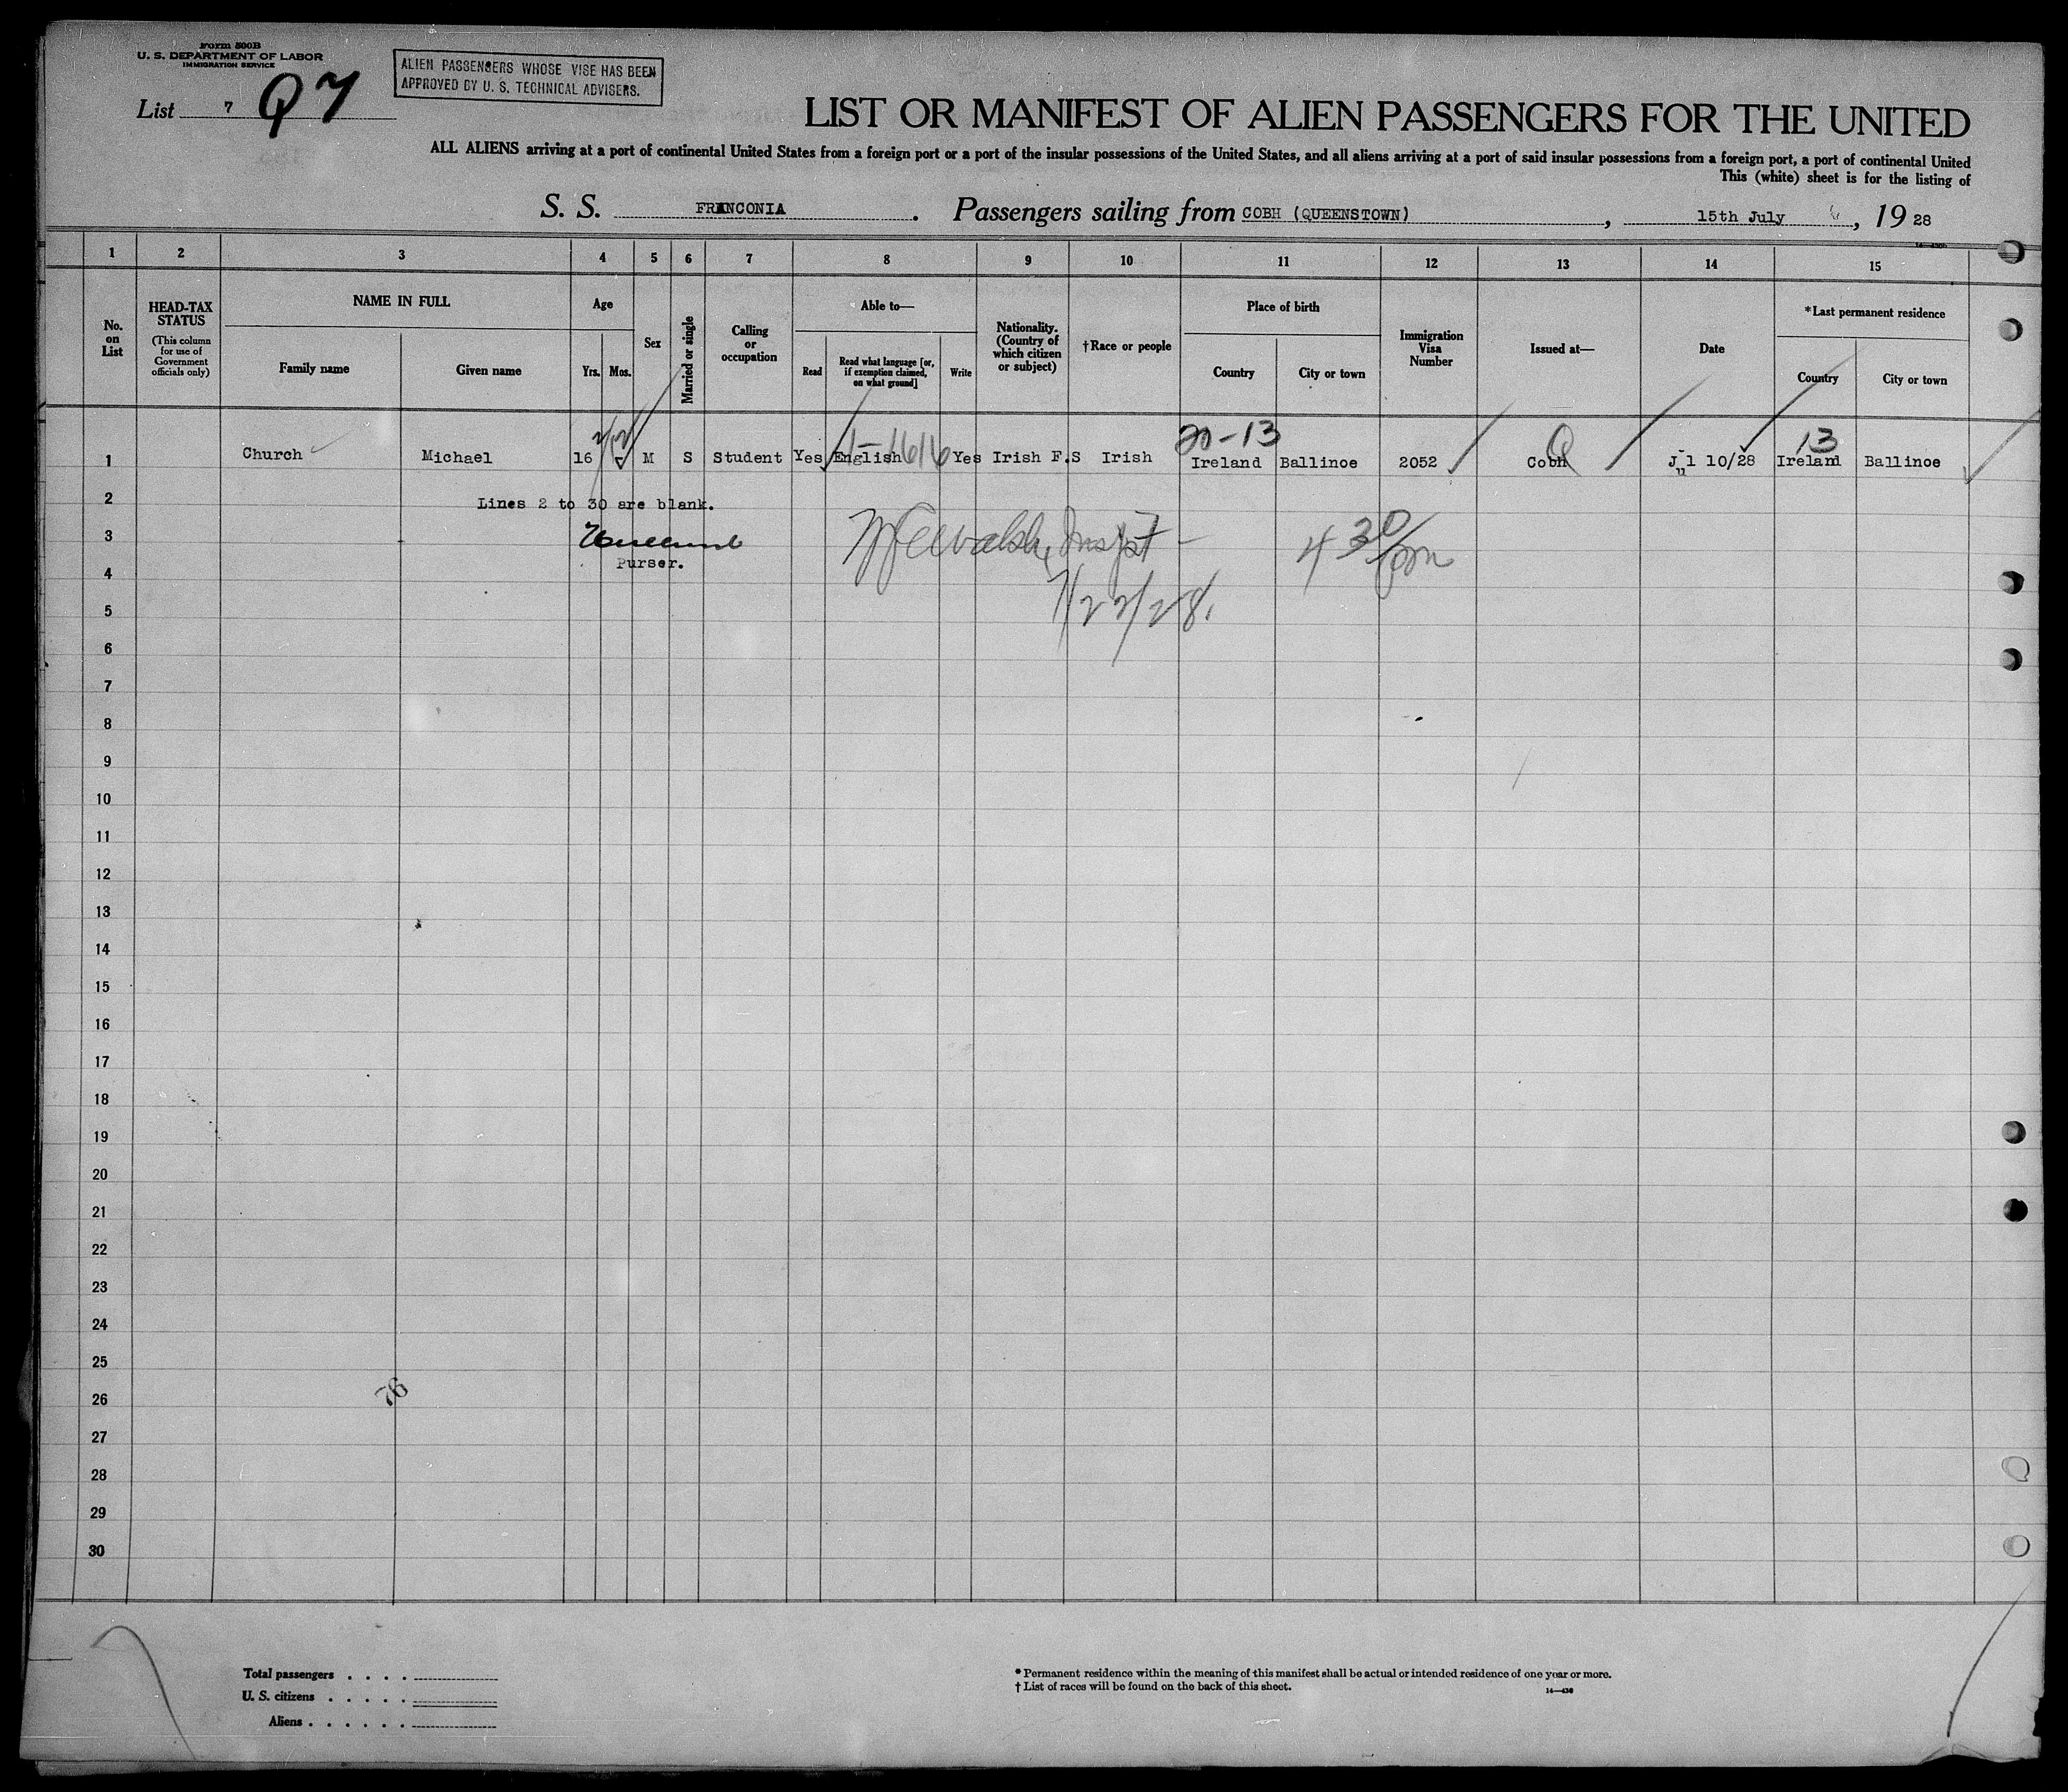 Form 500B
U. S. DEPARTMENT OF LABOR
IMMIGRATION SERVICE
ALIEN PASSENGERS WHOSE VISE HAS BEEN
APPROVED BY U. S. TECHNICAL ADVISERS.
List 7 Q7
LIST OR MANIFEST OF ALIEN PASSENGERS FOR THE UNITED
ALL ALIENS arriving at a port of continental United States from a foreign port or a port of the insular possessions of the United States, and all aliens arriving at a port of said insular possessions from a foreign port, a port of continental United
This (white) sheet is for the listing of
S. S. FRANCONIA. Passengers sailing from COBH (QUEENSTOWN), 15th July, 1928
1 2 3 4 5 6 7 8 9 10 11 12 13 14 15
No. on List
HEAD-TAX STATUS
(This column for use of Government officials only)
NAME IN FULL
Family name Given name
Age
Yrs. Mos.
Sex
Married or single
Calling or occupation
Able to—
Read
Read what language [or, if exemption claimed, on what ground]
Write
Nationality. (Country of which citizen or subject)
†Race or people
Place of birth
Country City or town
Immigration Visa Number
Issued at—
Date
*Last permanent residence
Country City or town
20-13 13
1 Church Michael 16 M S Student Yes English Yes Irish F.S Irish Ireland Ballinoe 2052 Cobh Jul 10/28 Ireland Ballinoe
2 Lines 2 to 30 are blank.
3 Walsh, Inspt - 4 30/pm
4 Purser.
7/22/28.
5
6
7
8
9
10
11
12
13
14
15
16
17
18
19
20
21
22
23
24
25
26 76
27
28
29
30
Total passengers . . . .
U. S. citizens . . . . .
Aliens . . . . . .
* Permanent residence within the meaning of this manifest shall be actual or intended residence of one year or more.
† List of races will be found on the back of this sheet.
14—430